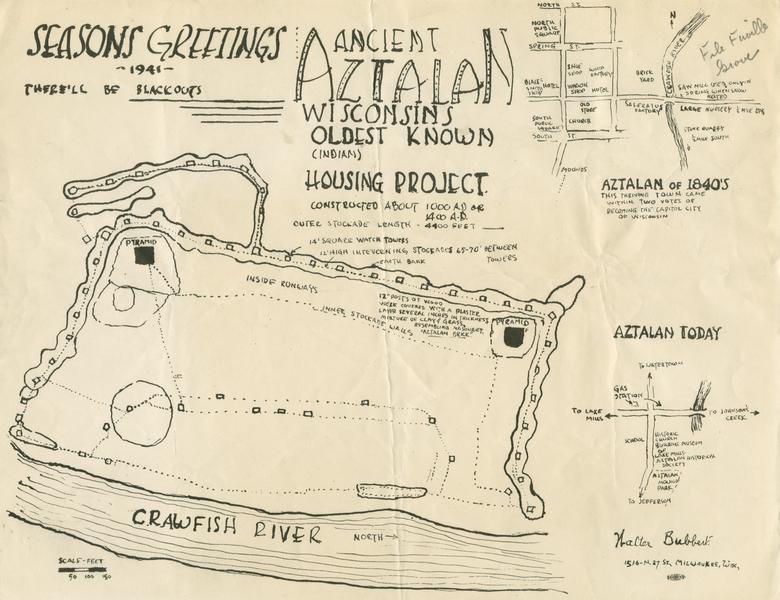 SEASONS GREETINGS
-1941-
THERE'LL BE BLACKOUTS
ANCIENT
AZTALAN
WISCONSIN'S
OLDEST KNOWN
(INDIAN)
HOUSING PROJECT.
CONSTRUCTED ABOUT 1000 A.D OR
1400 A.D.
OUTER STOCKADE LENGTH - 4400 FEET
14' SQUARE WATCH TOWERS
12' HIGH INTERVENING STOCKADES 65-70' BETWEEN
TOWERS
EARTH BANK
PYRAMID
INSIDE RUNWAYS
INNER STOCKADE WALLS
12" POSTS OF WOOD
WERE COVERED WITH A PLASTER
LAYER SEVERAL INCHES IN THICKNESS
MIXTURE OF CLAY & GRASS
RESEMBLING MASONRY.
"AZTALAN BRICK"
PYRAMID
CRAWFISH RIVER
NORTH→
SCALE-FEET
50 100 150
NORTH ST.
NORTH
PUBLIC
SQUARE
SPRING ST.
SHOE
SHOP
FACTORY
BRICK
YARD
BLACK-
SMITH
SHOP
HOTEL
WAGON
SHOP
HOTEL
OLD
STORE
SALERATUS
FACTORY
SOUTH
PUBLIC
SQUARE
CHURCH
SOUTH ST.
MOUNDS
N
CRAWFISH RIVER
SAW MILL
SPRING WHEN SNOW
MELTED
LARGE NURSERY
STONE QUARRY
SOUTH
File
Grove
AZTALAN OF 1840'S
THIS THRIVING TOWN CAME
WITHIN TWO VOTES OF
BECOMING THE CAPITOL CITY
OF WISCONSIN
AZTALAN TODAY
TO WATERTOWN
GAS
STATION
TO LAKE
MILLS
TO JOHNSON
CREEK
SCHOOL
HISTORIC
CHURCH
BUILDING MUSEUM
OF
LAKE MILLS
AZTALAN HISTORICAL
SOCIETY
AZTALAN
MOUND
PARK
TO JEFFERSON
Walter Bubbert
1516-N. 37 ST. MILWAUKEE, WIS.